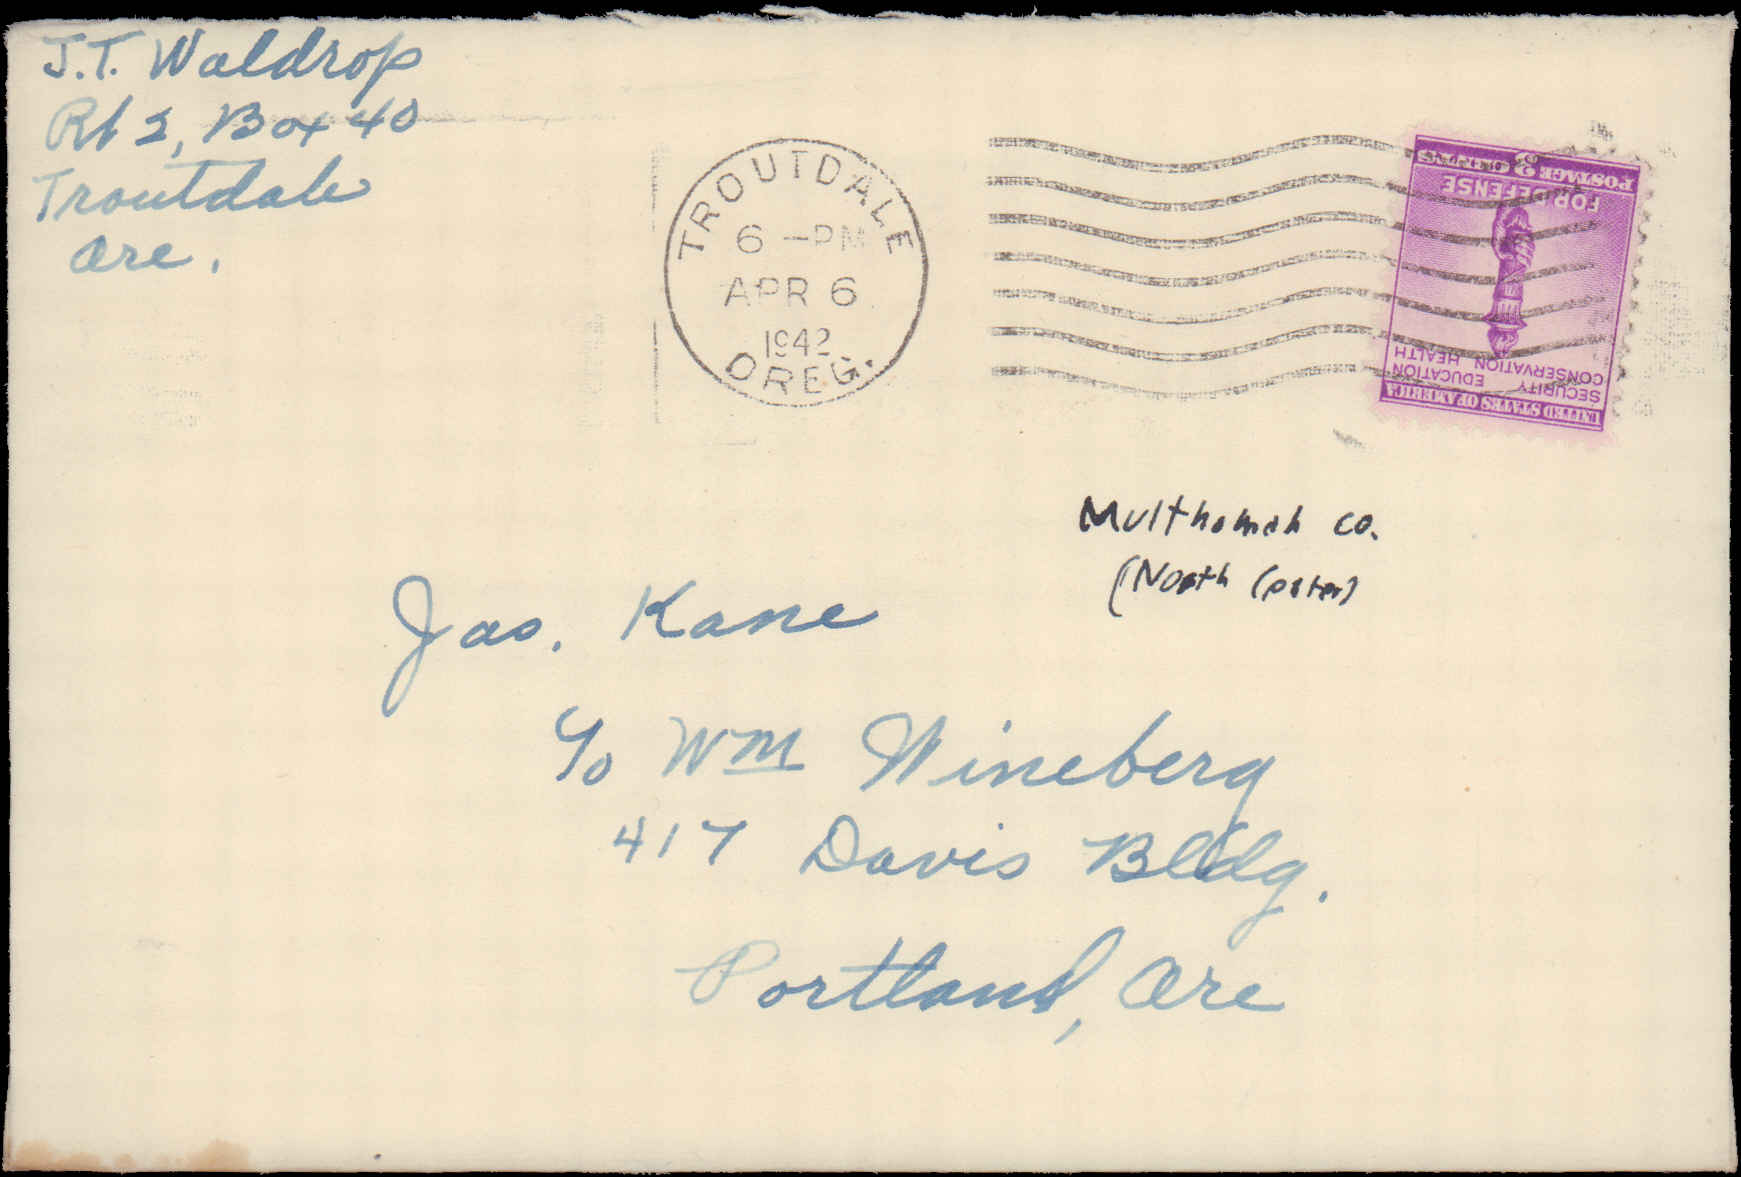 J.T. Waldrop
Rt 2, Box 40
Troutdale
Ore.
TROUTDALE
6 -PM
APR 6
1942
OREG.
UNITED STATES OF AMERICA
SECURITY EDUCATION
CONSERVATION HEALTH
FOR DEFENSE
POSTAGE 3 CENTS
Multhomah Co.
(North
Jas. Kane
c/o Wm Wineberg
417 Davis Bldg.
Portland, Ore